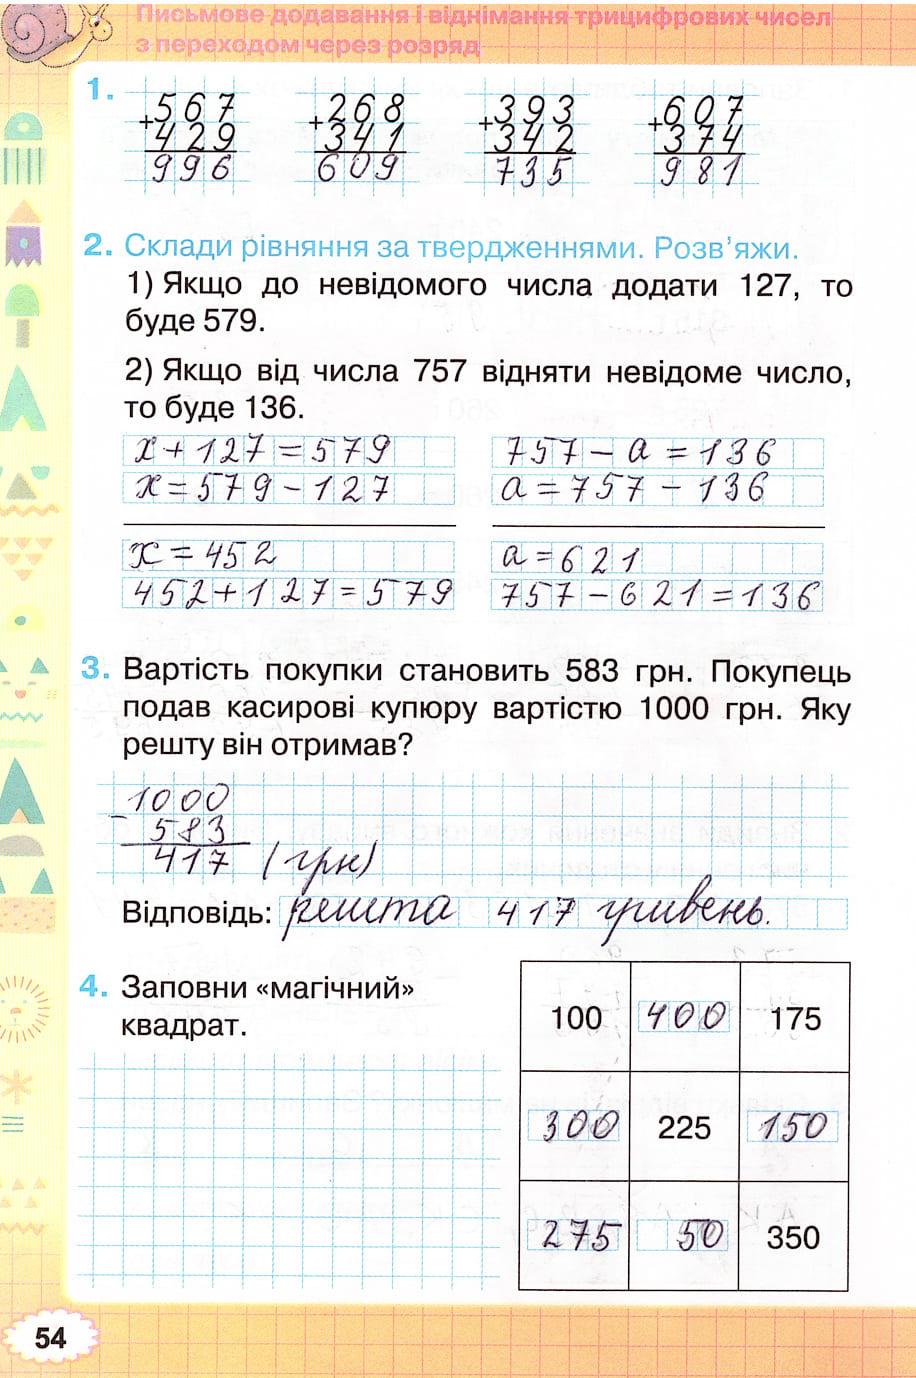 Письмове додавання і віднімання трицифрових чисел
з переходом через розряд
1. +567 +268 +393 +607
429 341 342 374
996 609 735 981
2. Склади рівняння за твердженнями. Розв’яжи.
1) Якщо до невідомого числа додати 127, то
буде 579.
2) Якщо від числа 757 відняти невідоме число,
то буде 136.
x + 127 = 579 757 - a = 136
x = 579 - 127 a = 757 - 136
x = 452 a = 621
452 + 127 = 579 757 - 621 = 136
3. Вартість покупки становить 583 грн. Покупець
подав касирові купюру вартістю 1000 грн. Яку
решту він отримав?
1000
- 583
417 (грн)
Відповідь: решта 417 гривень.
4. Заповни «магічний»
квадрат.
100 400 175
300 225 150
275 50 350
54